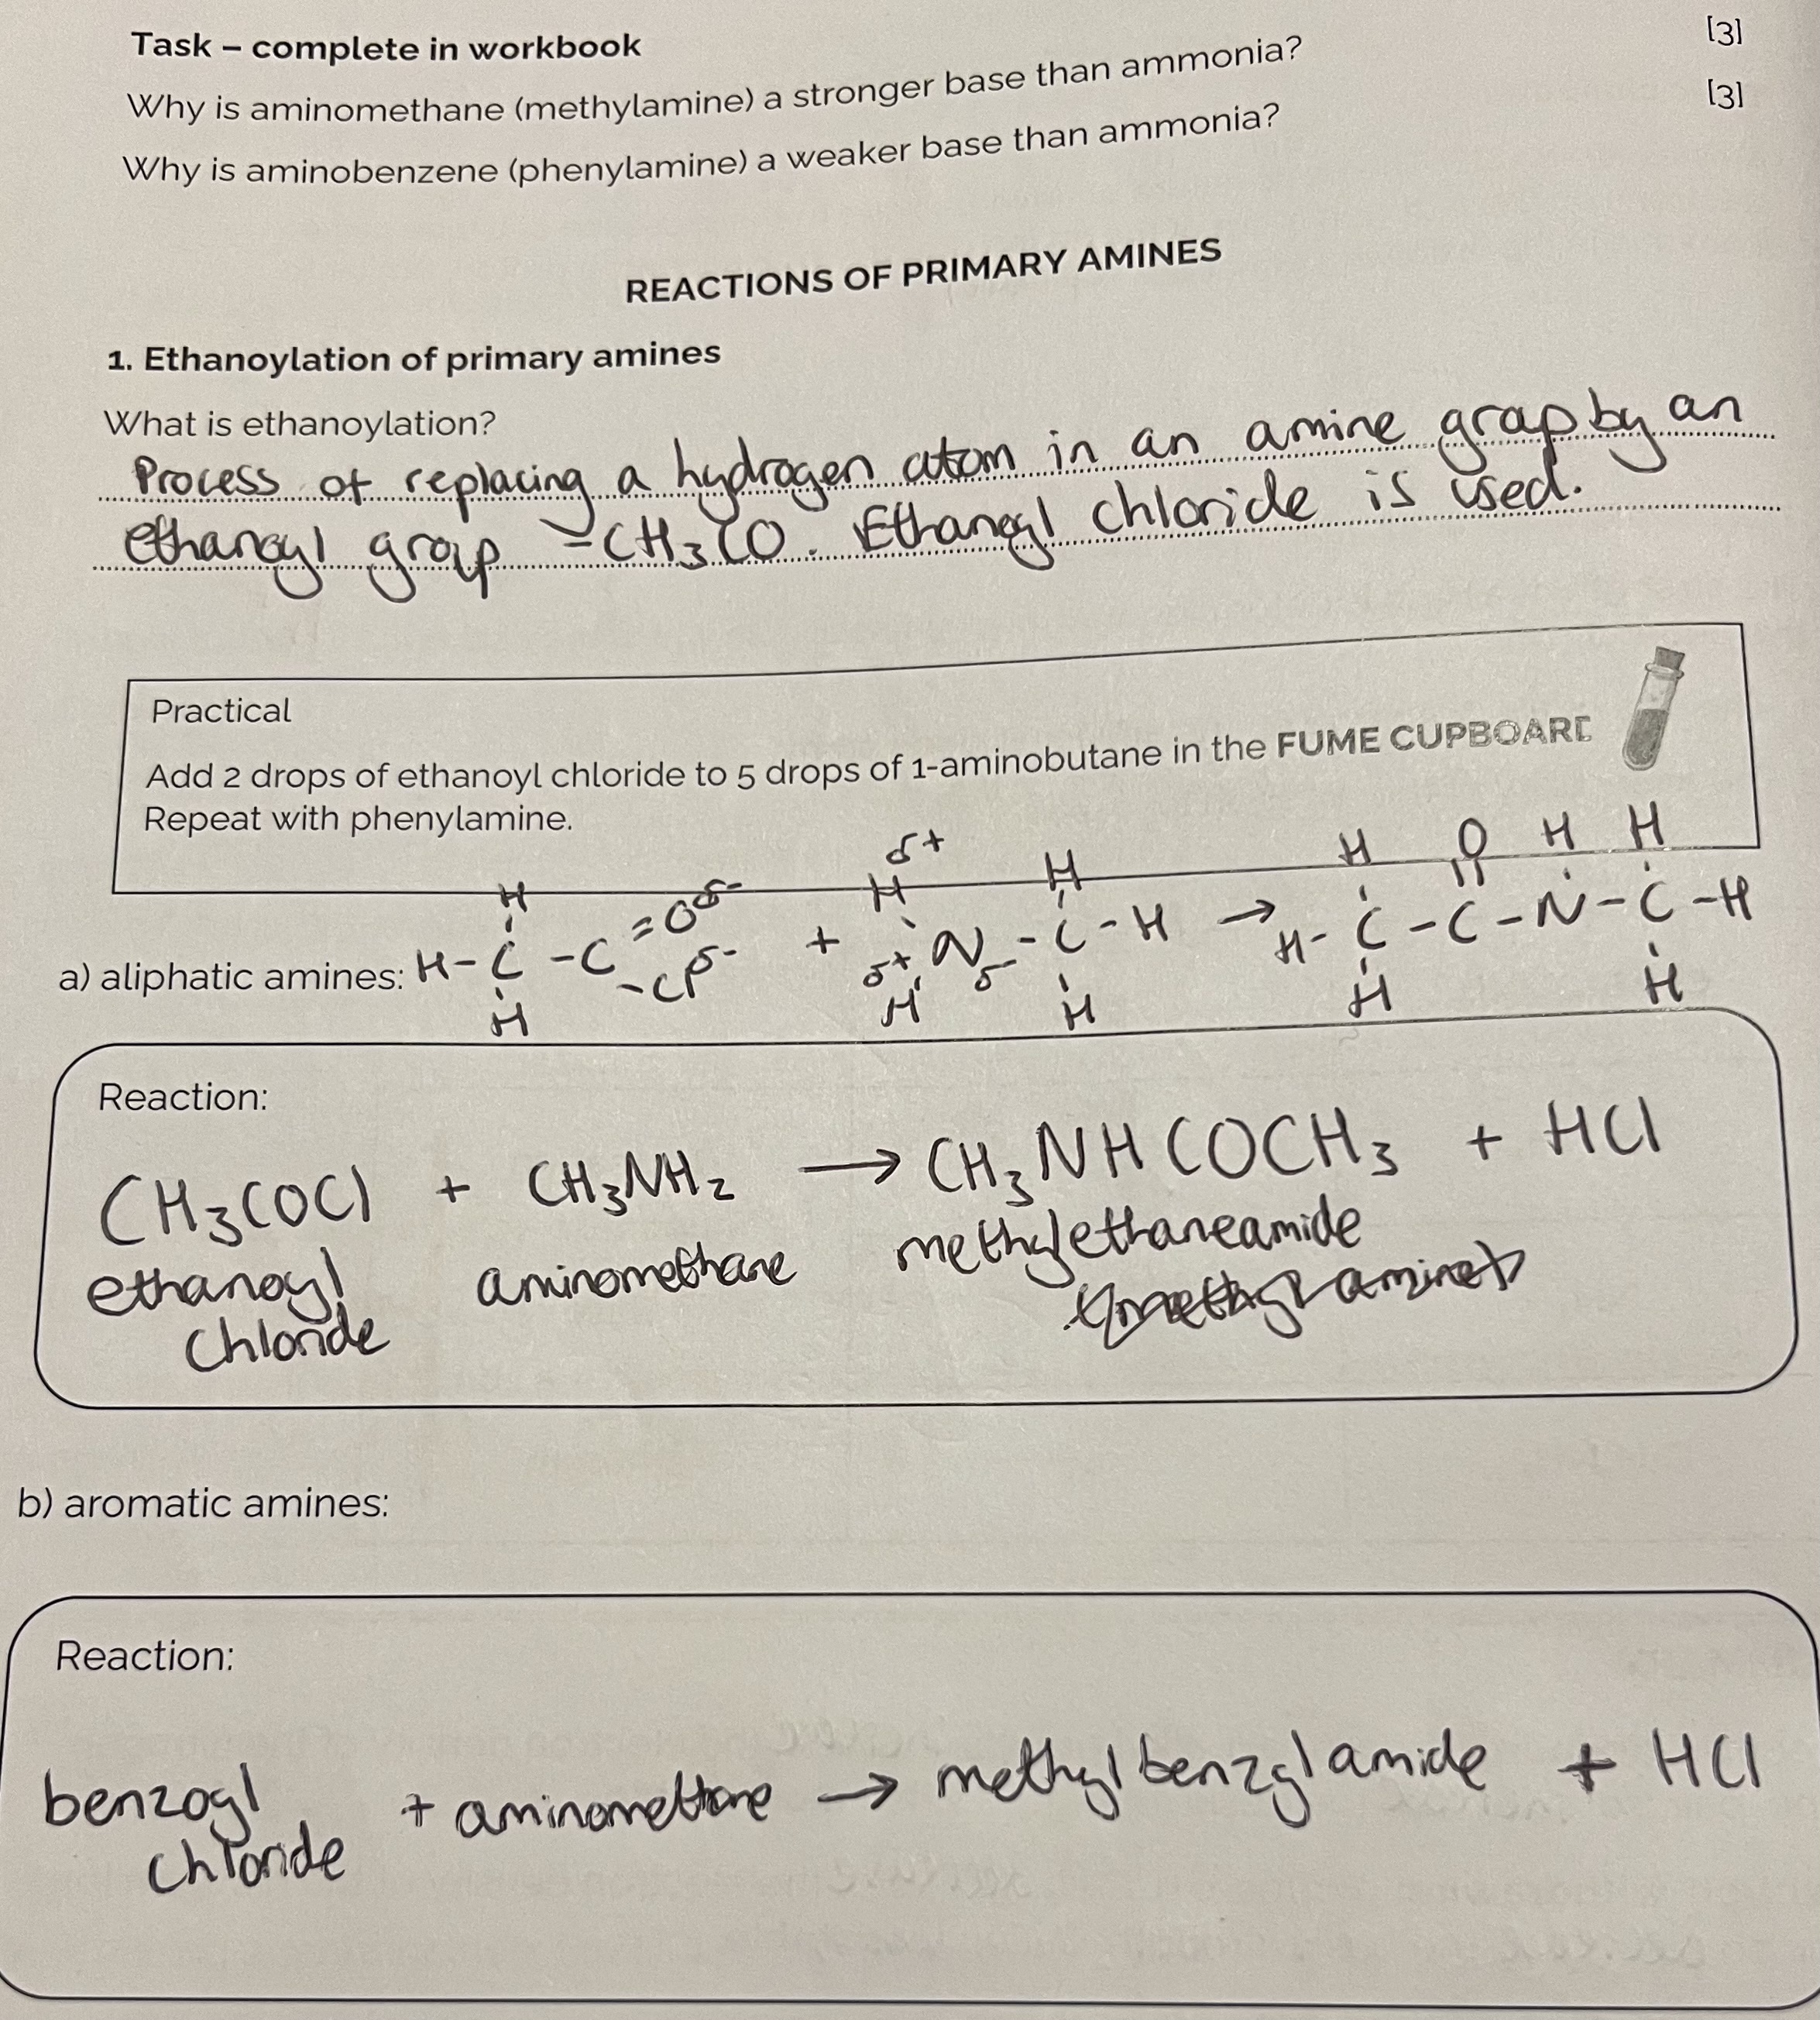 Task – complete in workbook
Why is aminomethane (methylamine) a stronger base than ammonia? [3]
Why is aminobenzene (phenylamine) a weaker base than ammonia? [3]
REACTIONS OF PRIMARY AMINES
1. Ethanoylation of primary amines
What is ethanoylation?
Process of replacing a hydrogen atom in an amine group by an
ethanoyl group -CH₃CO. Ethanoyl chloride is used.
Practical
Add 2 drops of ethanoyl chloride to 5 drops of 1-aminobutane in the FUME CUPBOARD
Repeat with phenylamine.
δ+ H O H H
H δ- H H
a) aliphatic amines: H - C - C = O - Cl δ- + δ+ N δ- - C - H → H - C - C - N - C - H
H H H H H
Reaction:
CH₃COCl + CH₃NH₂ → CH₃NHCOCH₃ + HCl
ethanoyl chloride aminomethane methylethaneamide
b) aromatic amines:
Reaction:
benzoyl chloride + aminomethane → methylbenzylamide + HCl